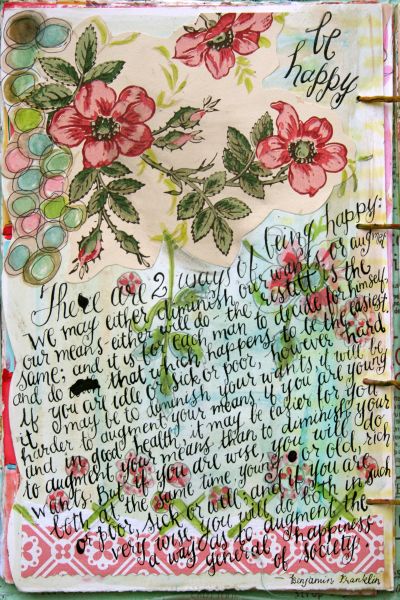 be
happy
There are 2 ways of being happy:
we may either diminish our wants or augment
our means either will do - the result is the
same; and it is for each man to decide for himself,
and do that which happens to be the easiest.
if you are idle or sick or poor, however hard
it may be to diminish your wants, it will be
harder to augment your means. if you are young
and in good health, it may be easier for you
to augment your means than to diminish your
wants. But if you are wise, you will do
both at the same time, young or old, rich
or poor, sick or well; and if you are
very wise you will do both in such
a way as to augment the
general happiness
of society.
- Benjamin Franklin